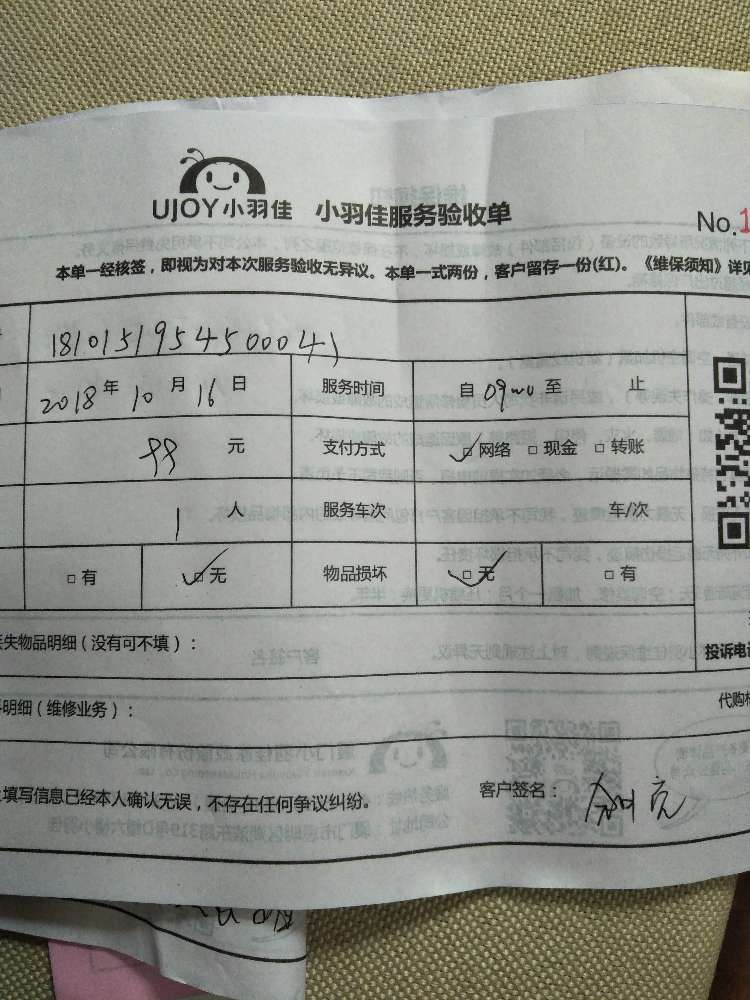 UJOY小羽佳 小羽佳服务验收单
No.1
本单一经核签，即视为对本次服务验收无异议。本单一式两份，客户留存一份(红)。《维保须知》详见
18101519545000041
2018年10月16日 服务时间 自09:00至 止
99元 支付方式 ☑网络 □现金 □转账
1人 服务车次 车/次
□有 ☑无 物品损坏 ☑无 □有
失物品明细（没有可不填）：
投诉电
明细（维修业务）：
代购
填写信息已经本人确认无误，不存在任何争议纠纷。 客户签名：